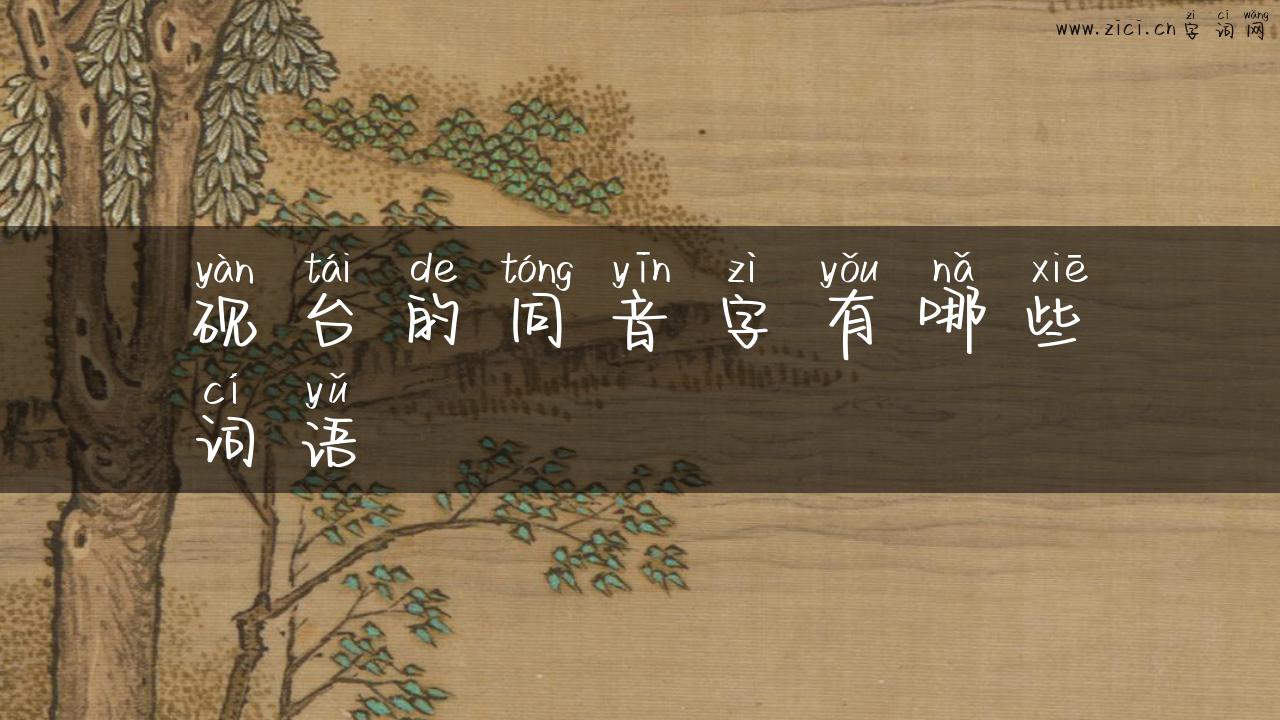 zì cí wǎng
www.zici.cn 字词网
yàn tái de tóng yīn zì yǒu nǎ xiē
砚台的同音字有哪些
cí yǔ
词语